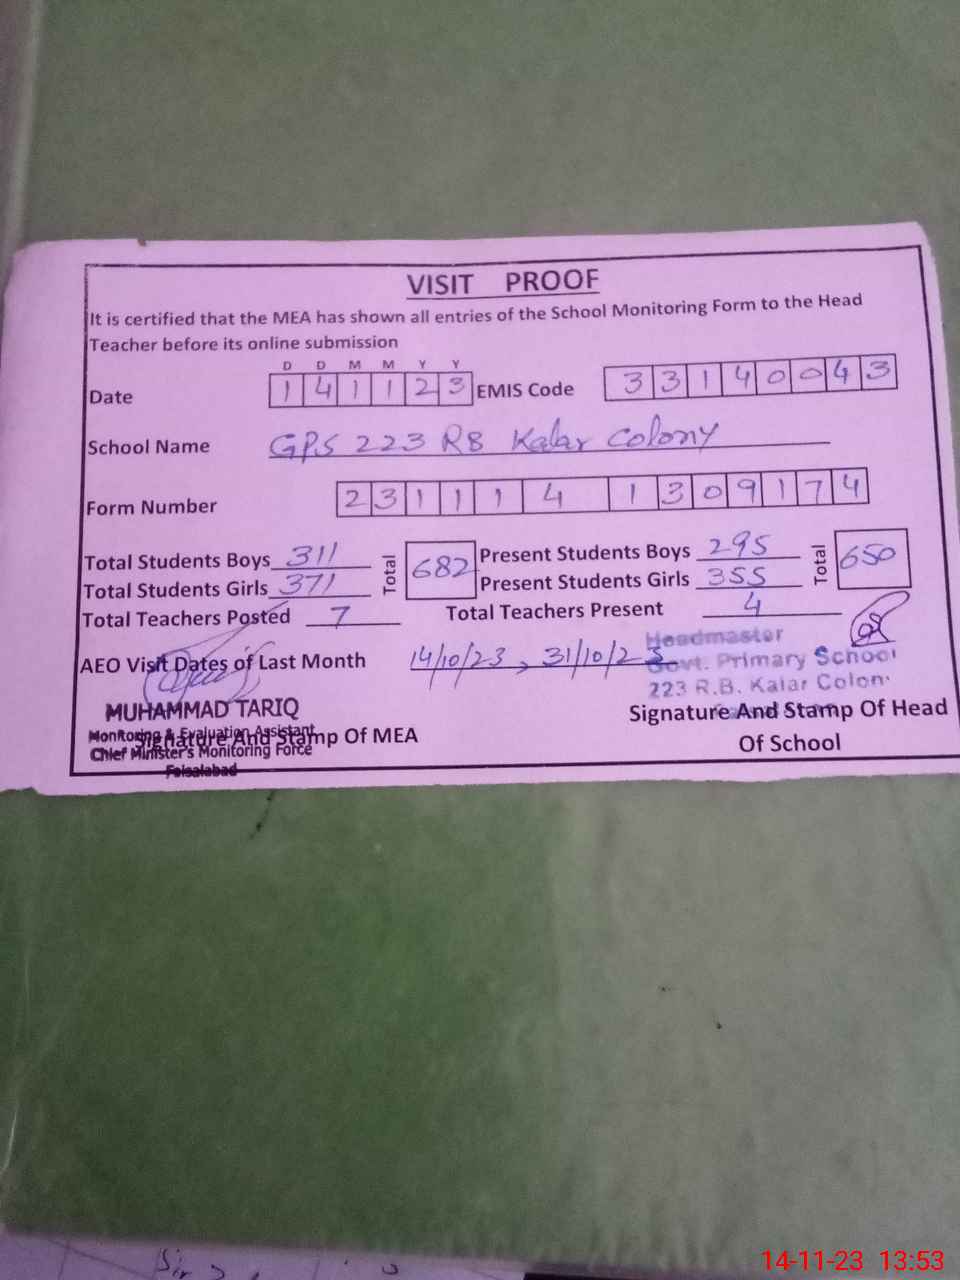 VISIT PROOF
It is certified that the MEA has shown all entries of the School Monitoring Form to the Head
Teacher before its online submission
D D M M Y Y
Date 1 4 1 1 2 3 EMIS Code 3 3 1 4 0 0 4 3
School Name GPS 223 RB Kalar Colony
Form Number 2 3 1 1 1 4 1 3 0 9 1 7 4
Total Students Boys 311 Total 682 Present Students Boys 295 Total 650
Total Students Girls 371 Present Students Girls 355
Total Teachers Posted 7 Total Teachers Present 4
AEO Visit Dates of Last Month 14/10/23, 31/10/23
Headmaster
Govt. Primary School
223 R.B. Kalar Colon
MUHAMMAD TARIQ
Monitoring & Evaluation Assistant
Chief Minister's Monitoring Force
Faisalabad
Signature And Stamp Of MEA
Signature And Stamp Of Head
Of School
14-11-23 13:53